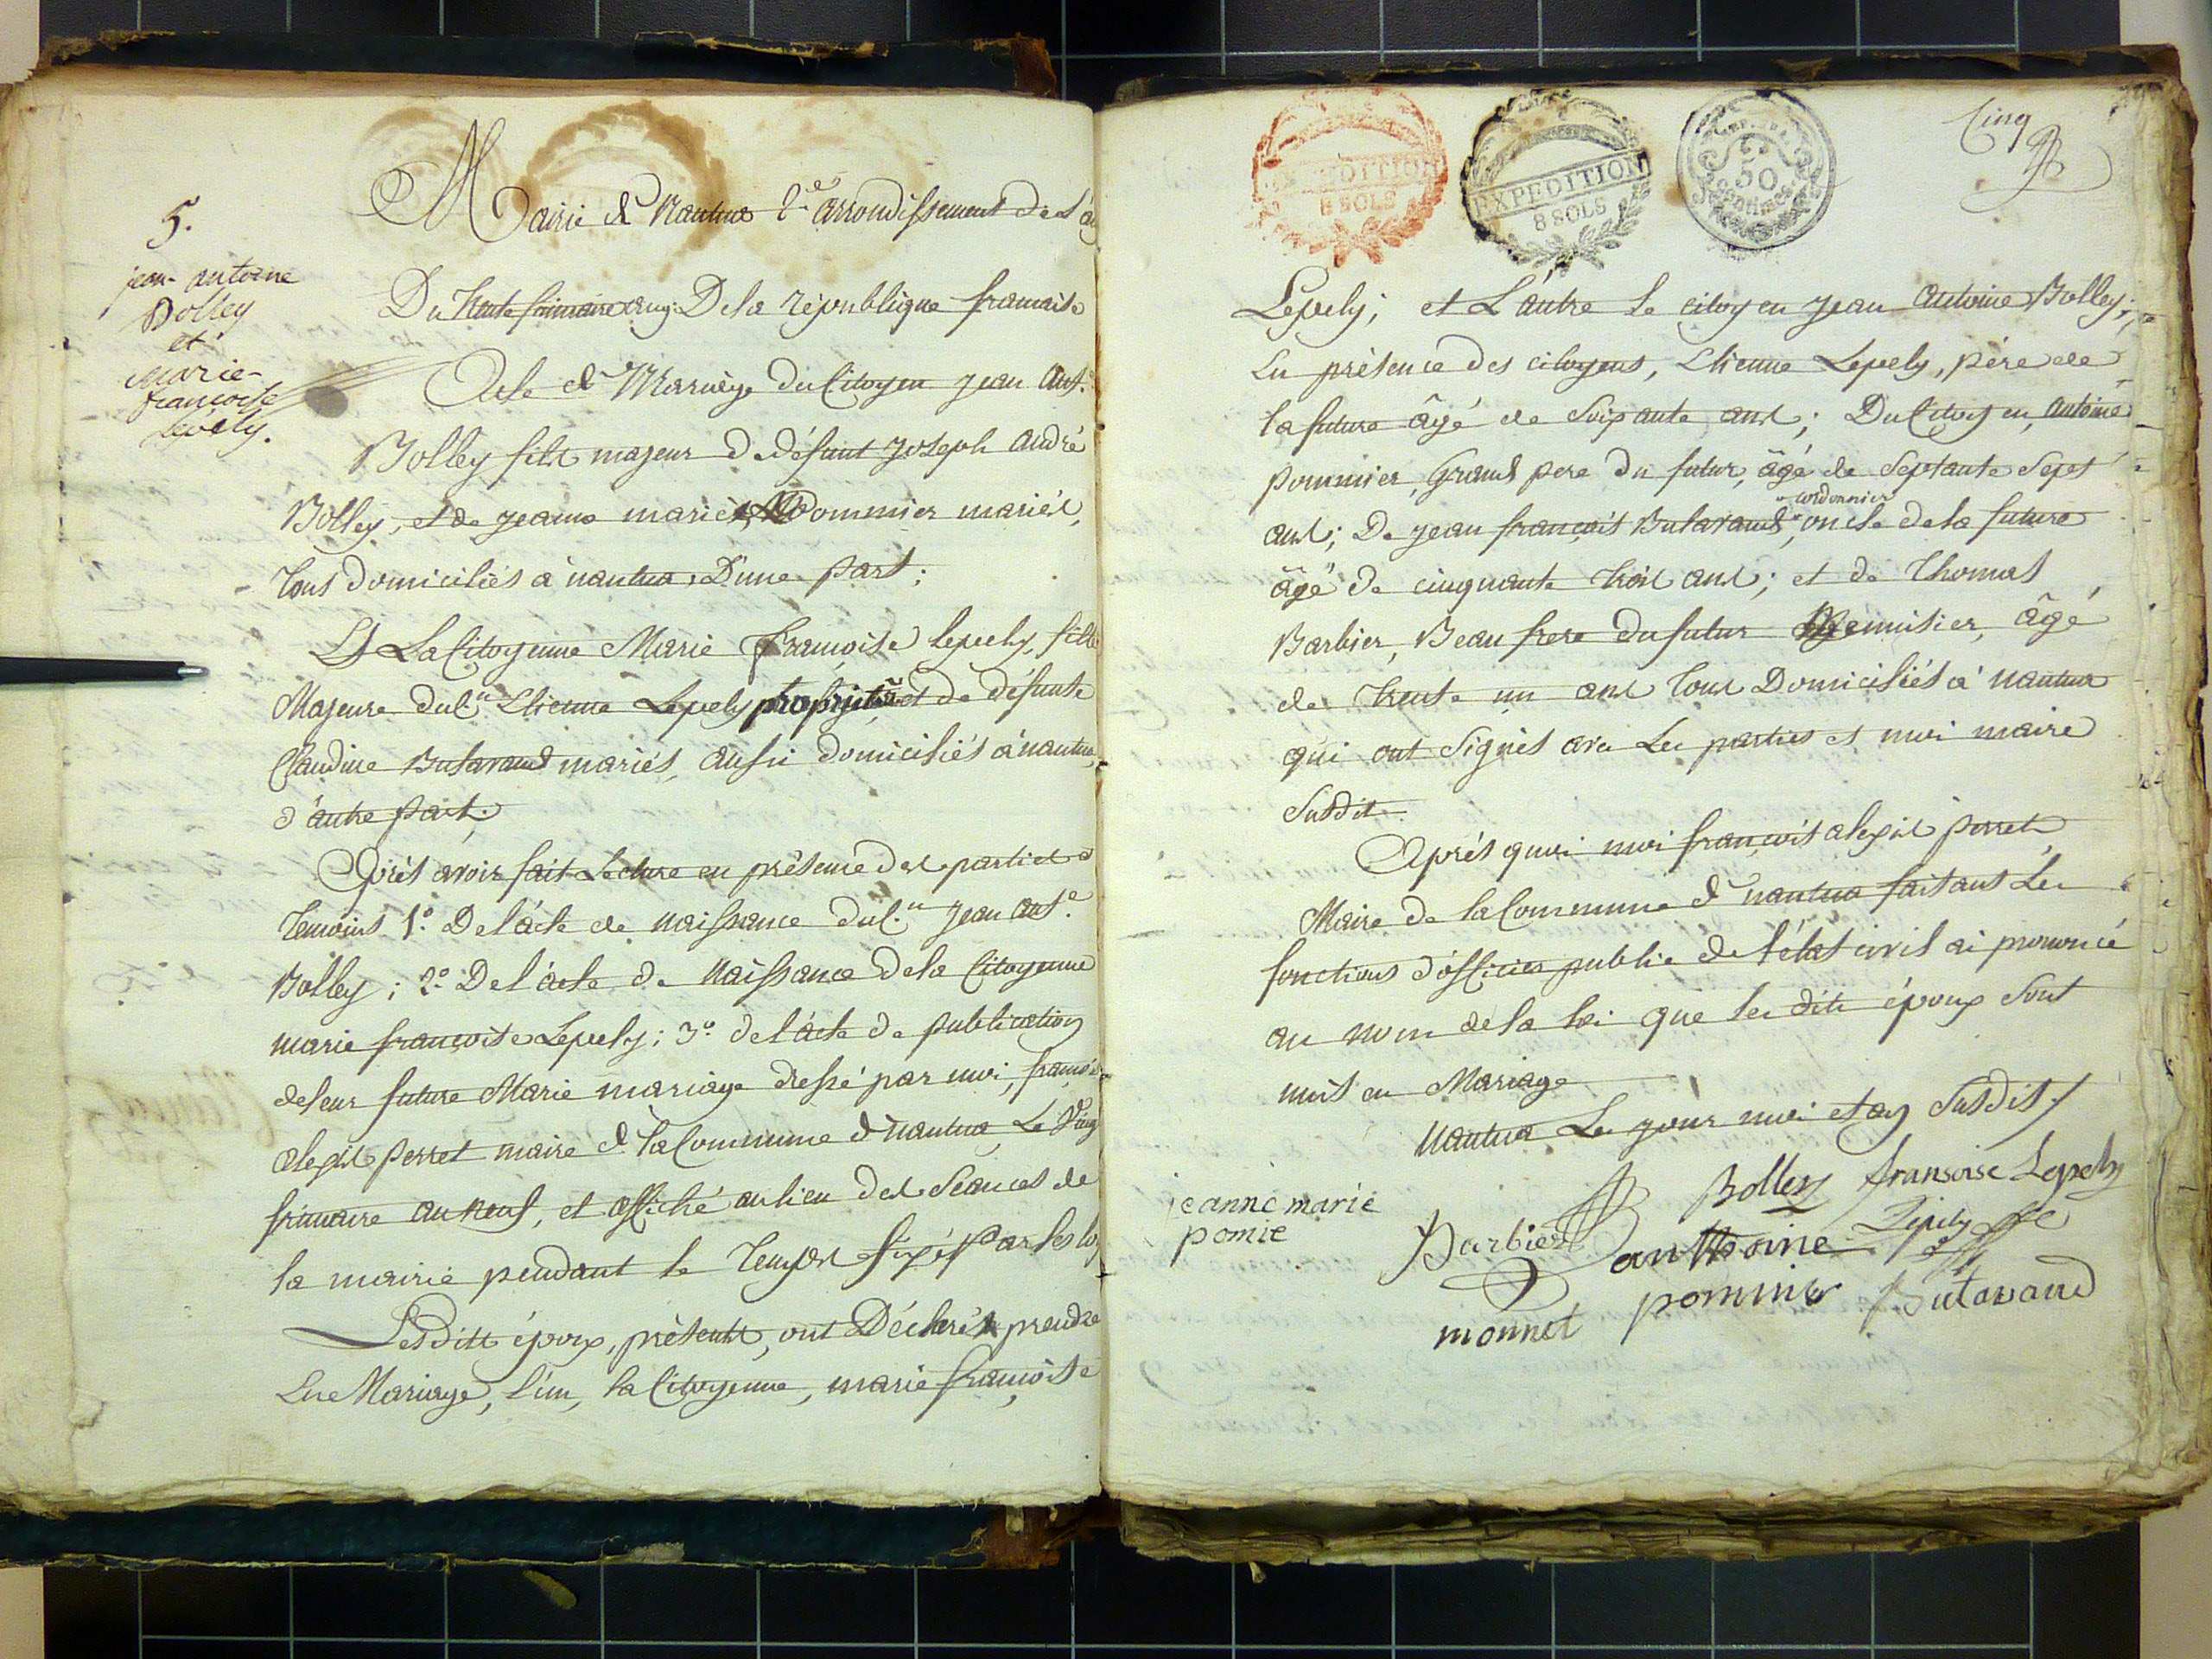 5.
jean-antoine
Bolley
et
Marie-
françoise
Lepely.
Mairie de Nantua 2.e arrondissement de L'ain
Du trente frimaire an 9 De la république francaise
Acte de Mariage du Citoyen jean Ant.e
Bolley fils majeur de défunt joseph andré
Bolley, et de jeanne marie Pommier mariés,
tous domiciliés à nantua, D'une part;
Et La Citoyenne Marie françoise Lepely, fille
Majeure du C.n Etienne Lepely propriét.re et de défunte
Claudine Butavand mariés, aussi domiciliés à nantua,
d'autre part.
Après avoir fait lecture en présence des parties et
temoins 1.o De l'acte de naissance du C.n jean ant.e
Bolley; 2.o De l'acte de naissance de la Citoyenne
marie françoise Lepely; 3.o de l'acte de publication
de leur future Marie mariage dressé par moi, françois
alexis perret maire de la Commune de nantua Le Vingt
frimaire an neuf, et affiché au lieu des Séances de
la mairie pendant le temps fixé par les lois
Lesdits époux, présents, ont Déclarés prendre
En Mariage, l'un, la Citoyenne, marie françoise
EXPEDITION
8 SOLS
EXPEDITION
8 SOLS
50
centimes
Cinq
Lepely; et L'autre le citoyen jean antoine Bolley;
En présence des citoyens, Etienne Lepely, père de
la future âgé de soixante ans; Du Citoyen, antoine
pommier, Grand pere du futur, âgé de septante sept
cordonnier
ans; De jean françois Butavand, oncle de la future
âgé de cinquante trois ans; et de thomas
Barbier, Beau frere du futur Menuisier, âgé
de trente un ans tous Domiciliés à nantua
qui ont signés avec Les parties et moi maire
susdit.
Après quoi moi françois alexis perret,
Maire de la Commune de nantua faisant Les
fonctions d'officier public de l'état civil ai prononcé
au nom de la loi que les dits époux sont
unis en Mariage
nantua Les jour moi et an susdits
jeanne marie
pomie
Bolley fransoise Lepely
Barbier anthoine Lepely
monnet pommier Butavand